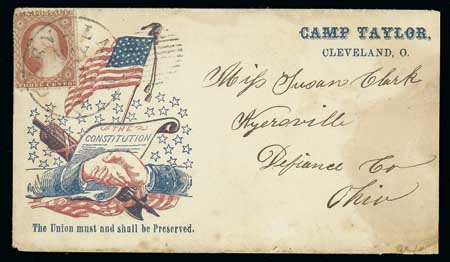 THREE CENTS
CAMP TAYLOR,
CLEVELAND, O.
THE
CONSTITUTION
The Union must and shall be Preserved.
Miss Susan Clark
Ayersville
Defiance Co
Ohio